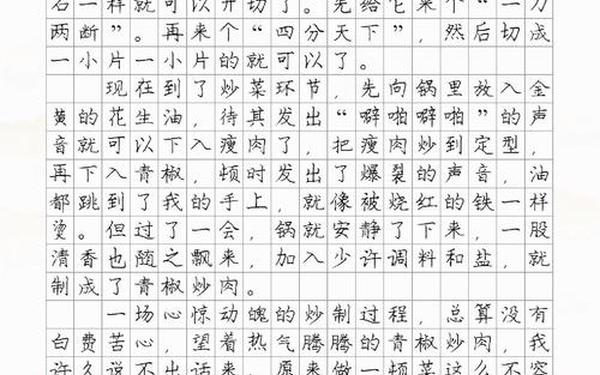 石一样就可以开切了。先给它来个“一刀
两断”。再来个“四分天下”，然后切成
一小片一小片的就可以了。
现在到了炒菜环节，先向锅里放入金
黄的花生油，待其发出“噼啪噼啪”的声
音就可以下入瘦肉了，把瘦肉炒到定型，
再下入青椒，顿时发出了爆裂的声音，油
都跳到了我的手上，就像被烧红的铁一样
烫。但过了一会，锅就安静了下来，一股
清香也随之飘来，加入少许调料和盐，就
制成了青椒炒肉。
一场心惊动魄的炒制过程，总算没有
白费苦心，望着热气腾腾的青椒炒肉，我
许久说不出话来，原来做一顿菜这么不容